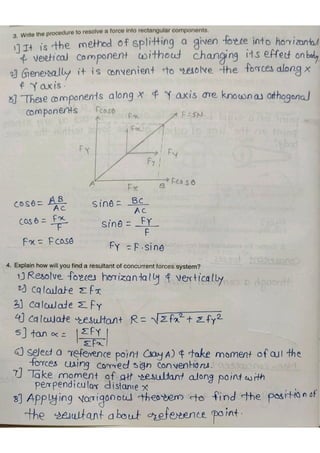 3. Write the procedure to resolve a force into rectangular components.
1] It is the method of splitting a given force into horizontal
& vertical component without changing its effect on body
2] Generally it is convenient to resolve the forces along x
& Y axis.
3] These components along x & Y axis are known as othogonal
components
Fcosθ
Fx
F=5N
Fx
Fy
Fy
Fy
A
Fx
B
Fcosθ
cosθ = AB / AC
sinθ = BC / AC
cosθ = Fx / F
sinθ = Fy / F
Fx = Fcosθ
Fy = F·sinθ
4. Explain how you will find a resultant of concurrent forces system?
1] Resolve forces horizantally & vertically.
2] calculate Σfx
3] calculate Σfy
4] calculate resultant R = √Σfx² + Σfy²
5] tan α = |Σfy / Σfx|
6] select a reference point (say A) & take moment of all the
forces using correct sign conventions.
7] Take moment of all resultant along point with
perpendicular distance x
8] Applying varigonous theorem to find the position of
the resultant about reference point.